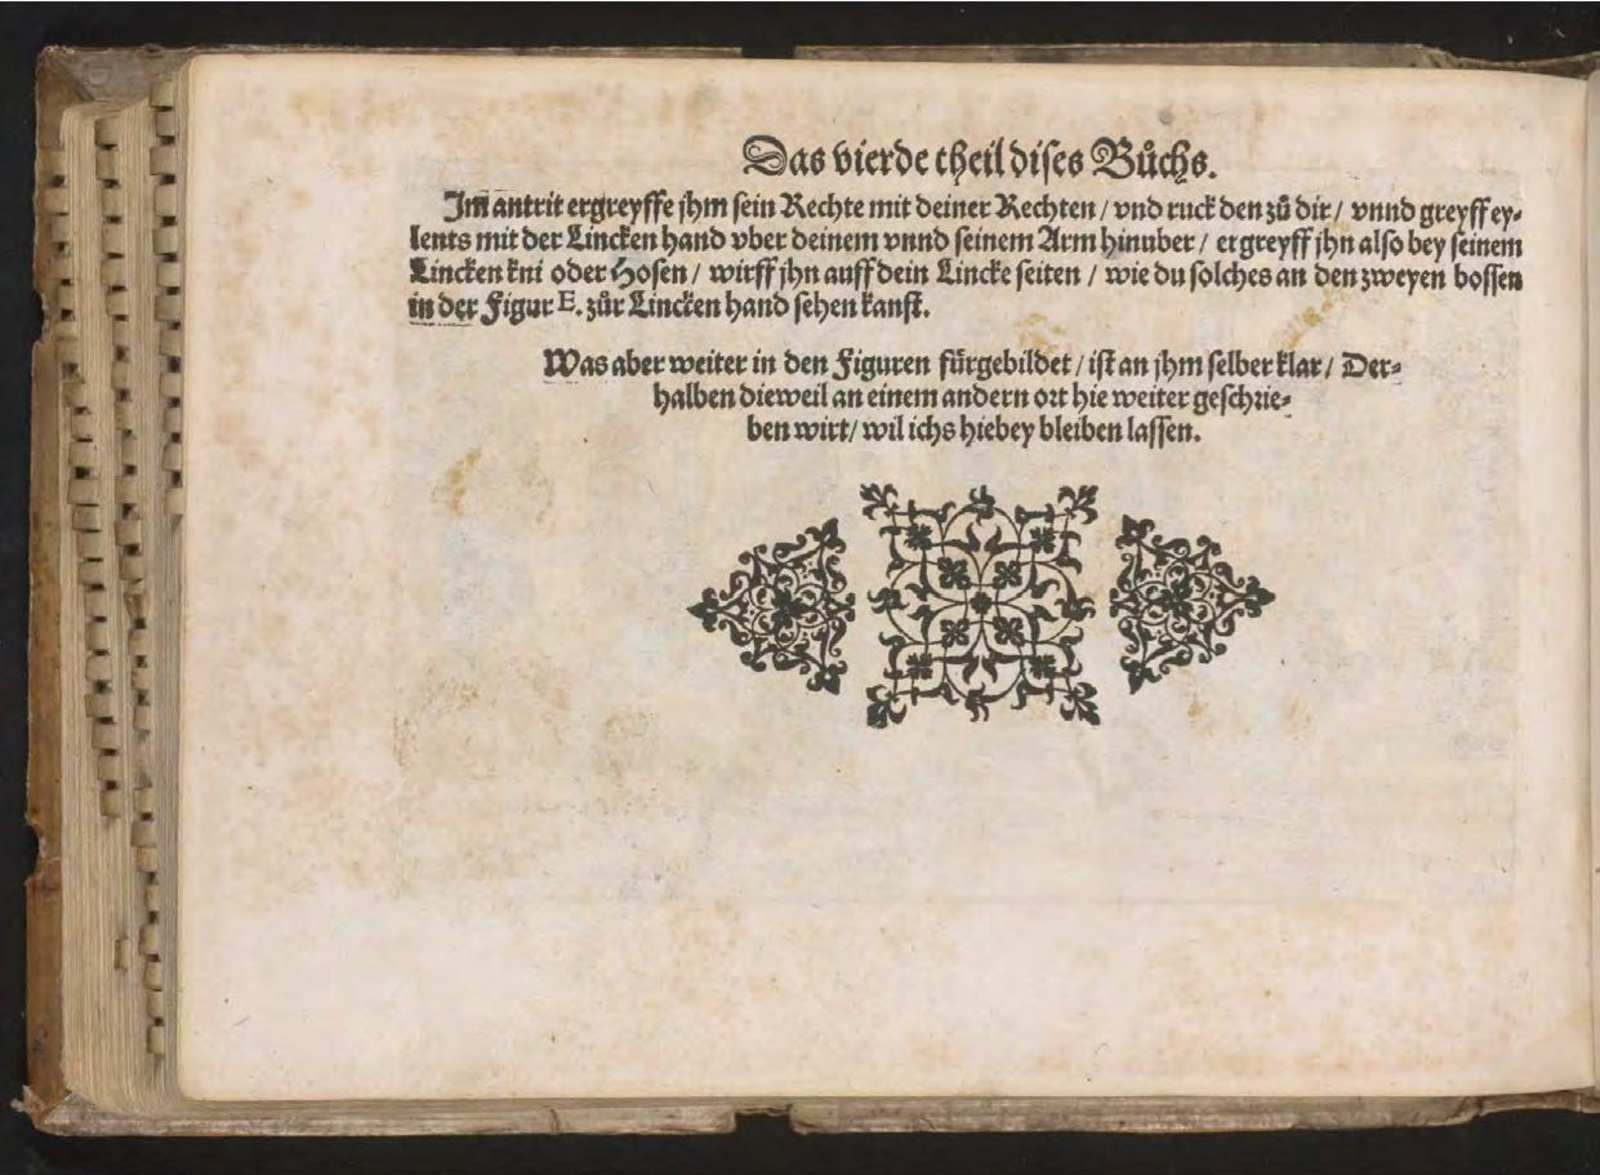 Das vierde theil dises Bůchs.
Im̃ antrit ergreyffe jhm sein Rechte mit deiner Rechten / vnd ruck den zů dir / vnnd greyff ey-
lents mit der Lincken hand vber deinem vnnd seinem Arm hinuber / ergreyff jhn also bey seinem
Lincken kni oder Hosen / wirff jhn auff dein Lincke seiten / wie du solches an den zweyen bossen
in der Figur E. zůr Lincken hand sehen kanst.
Was aber weiter in den Figuren fürgebildet / ist an jhm selber klar / Der-
halben dieweil an einem andern ort hie weiter geschrie-
ben wirt / wil ichs hiebey bleiben lassen.